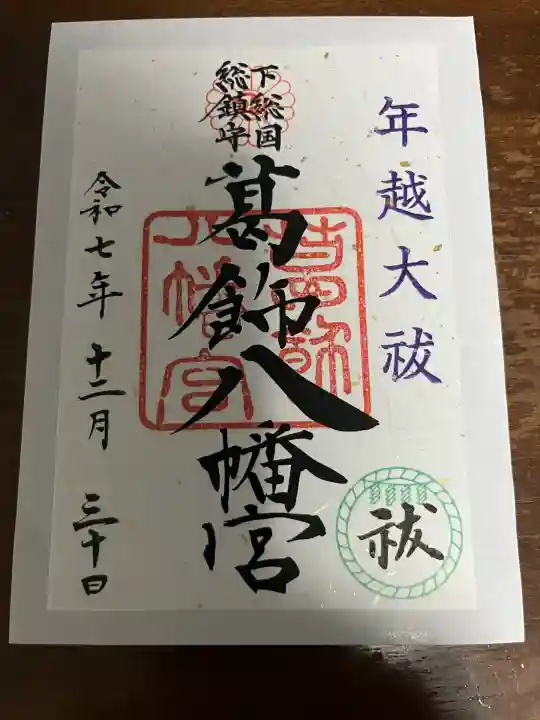 年越大祓
祓
下総国
総鎮守
葛飾八幡宮
葛飾
八幡宮
令和七年 十二月 三十日